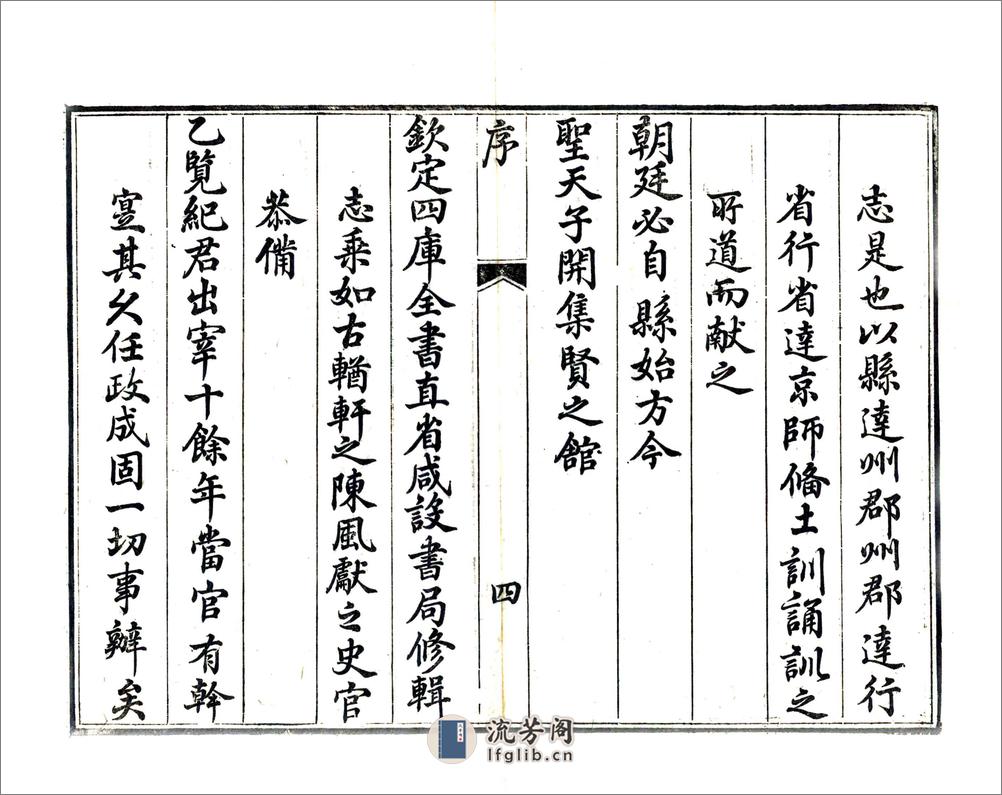 志是也以縣達州郡州郡達行
省行省達京師俻土訓誦訓之
所道而献之
朝廷必自縣始方今
聖天子開集賢之舘
序
四
欽定四庫全書直省咸設書局修輯
志乗如古輶軒之陳風獻之史官
恭備
乙覽紀君出宰十餘年當官有幹
寔其久任政成固一切事辦矣
流芳阁
lfglib.cn